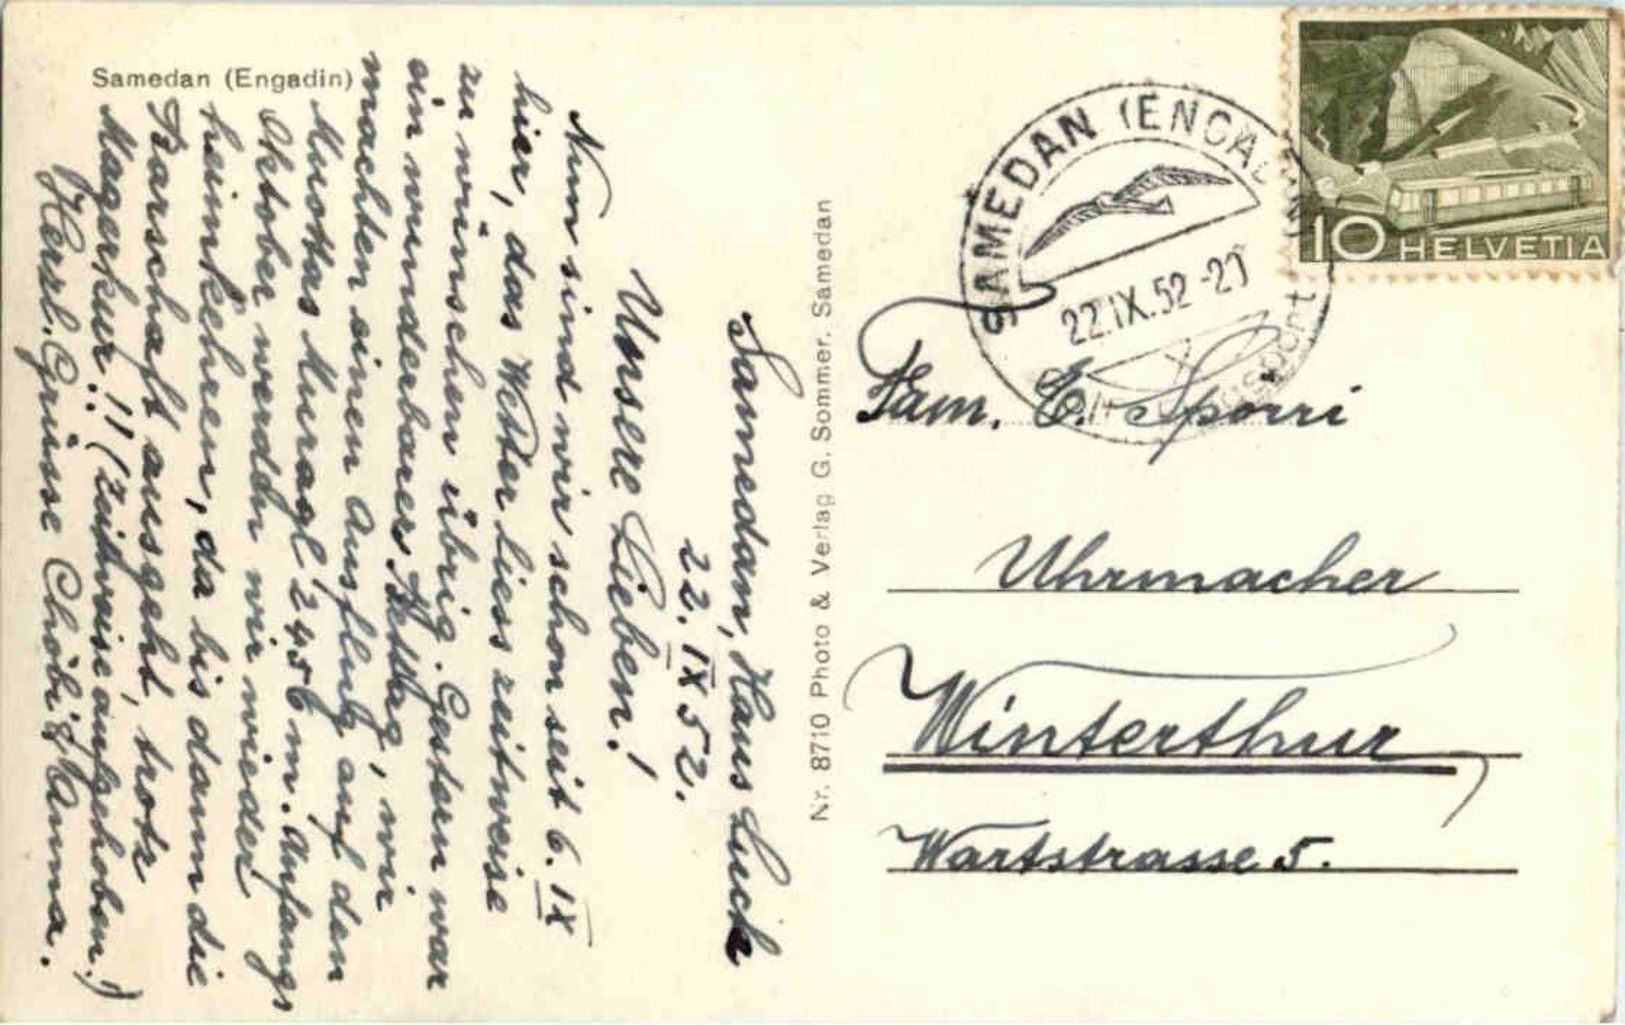 Samedan (Engadin)
Samedan, Haus Luck
22. IX 52.
Unsere Lieben!
Nun sind wir schon seit 6. IX
hier, das Wetter liess zeitweise
zu wünschen übrig. Gestern war
ein wunderbarer Bettag, wir
machten einen Ausflug auf den
Muottas Muragl 2456 m. Anfangs
Oktober werden wir wieder
heimkehren, da bis dann die
Barschaft ausgeht, trotz
Magerkur!! (zeitweise aufgehoben!)
Herzl. Grüsse Chöbi & Anna.
Nr. 8710 Photo & Verlag G. Sommer, Samedan
SAMEDAN (ENGADIN)
22.IX.52-20
10 HELVETIA
Fam. E. Spörri
Uhrmacher
Winterthur
Wartstrasse 5.